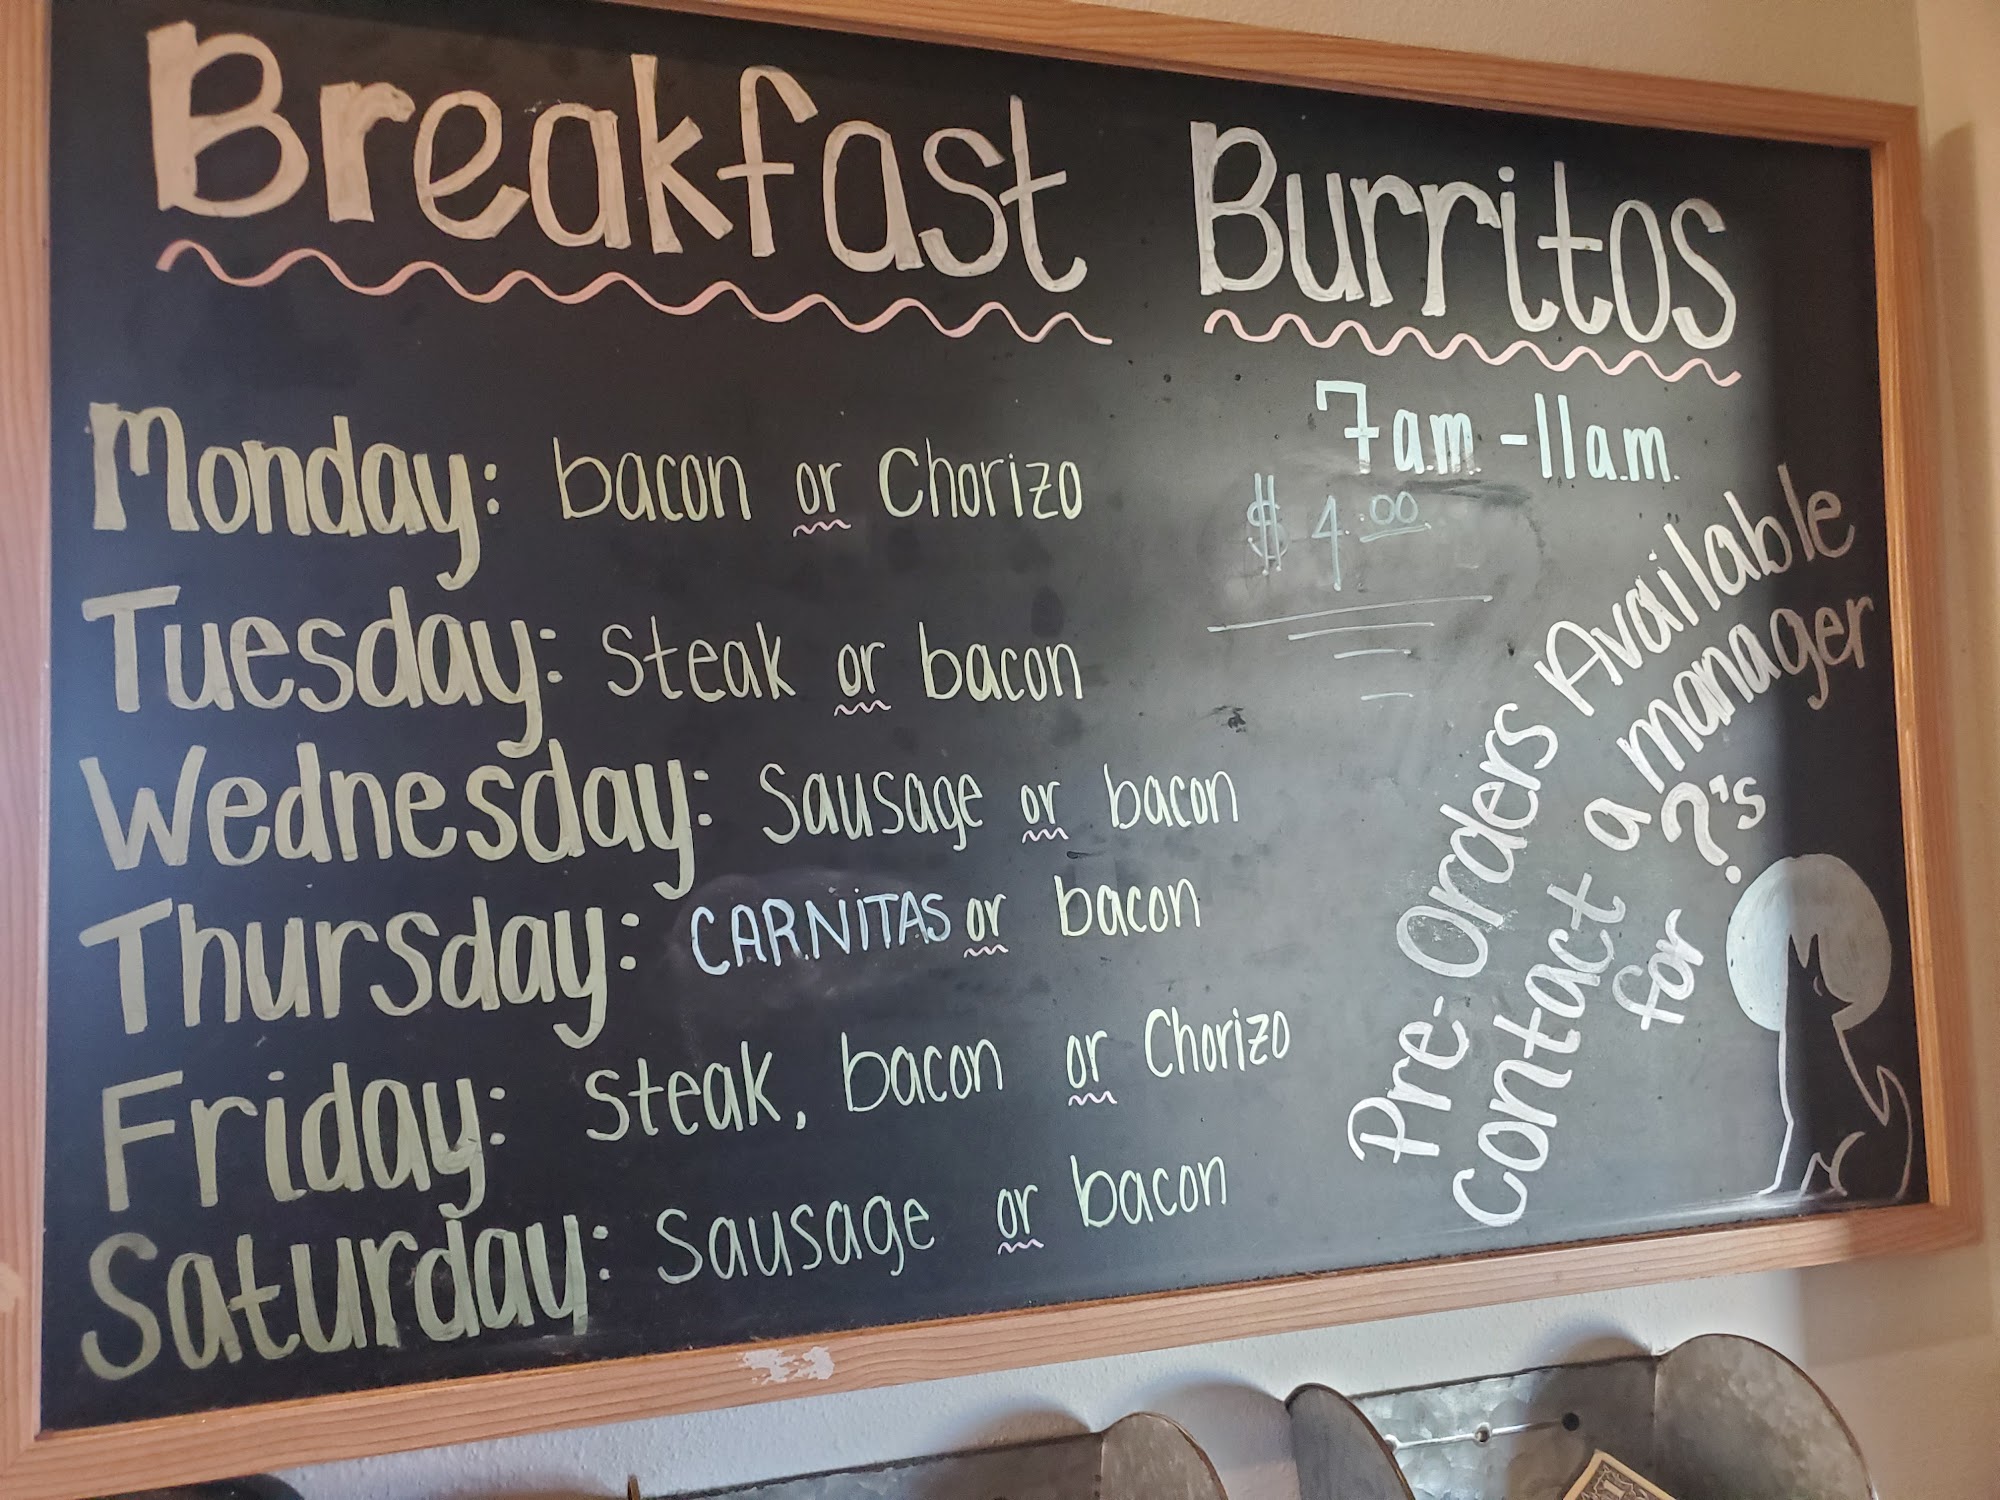 Breakfast Burritos
7a.m. - 11a.m.
$4.00
Monday: bacon or Chorizo
Tuesday: Steak or bacon
Wednesday: Sausage or bacon
Thursday: CARNITAS or bacon
Friday: Steak, bacon or Chorizo
Saturday: Sausage or bacon
Pre-Orders Available
Contact a manager
for ?'s